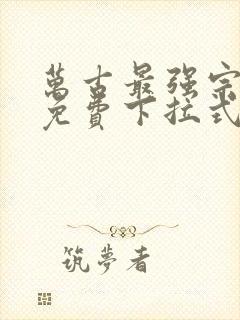 萬古最强宗
免費下拉式
筑夢者